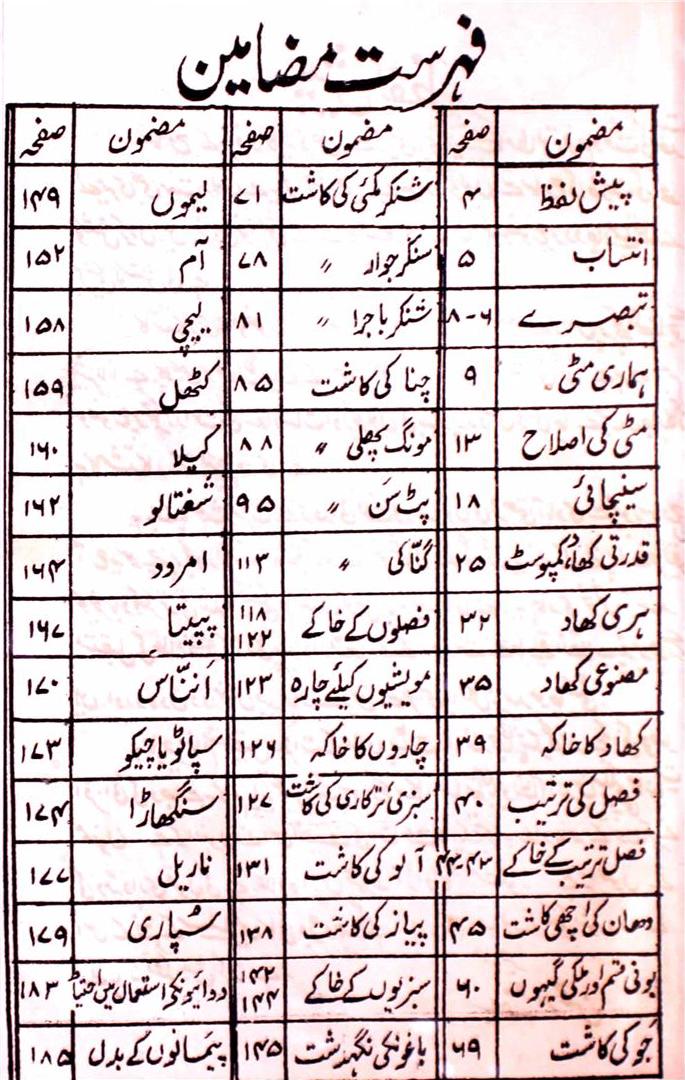 فہرست مضامین
مضمون صفحہ مضمون صفحہ مضمون صفحہ
پیش لفظ ۴ شنکر مکئی کی کاشت ۷۱ لیموں ۱۴۹
انتساب ۵ سنکر جوار 〃 ۷۸ آم ۱۵۲
تبصرے ۶-۸ شنکر باجرا 〃 ۸۱ لیچی ۱۵۸
ہماری مٹی ۹ چنا کی کاشت ۸۵ کٹھل ۱۵۹
مٹی کی اصلاح ۱۳ مونگ پھلی 〃 ۸۸ کیلا ۱۶۰
سینچائی ۱۸ پٹ سَن 〃 ۹۵ شفتالو ۱۶۲
قدرتی کھاد، کمپوسٹ ۲۵ گنّا کی 〃 ۱۱۳ امرود ۱۶۴
ہری کھاد ۳۲ فصلوں کے خاکے ۱۱۸ ۱۲۲ پپیتا ۱۶۷
مصنوعی کھاد ۳۵ مویشیوں کیلئے چارہ ۱۲۳ اَننّاس ۱۷۰
کھاد کا خاکہ ۳۹ چاروں کا خاکہ ۱۲۶ سپاٹو یا چیکو ۱۷۳
فصل کی ترتیب ۴۰ سبزی ترکاری کی کاشت ۱۲۷ سنگھاڑا ۱۷۴
فصل ترتیب کے خاکے ۴۳-۴۴ آلو کی کاشت ۱۳۱ ناریل ۱۷۷
دھان کی اچھی کاشت ۴۵ پیاز کی کاشت ۱۳۸ سُپاری ۱۷۹
بونی قسم اور ملکی گیہوں ۶۰ سبزیوں کے خاکے ۱۴۲ ۱۴۴ دوائیونکے استعمال میں احتیاط ۱۸۳
جَو کی کاشت ۶۹ باغونکی نگہداشت ۱۴۵ پیمانوں کے بدل ۱۸۵